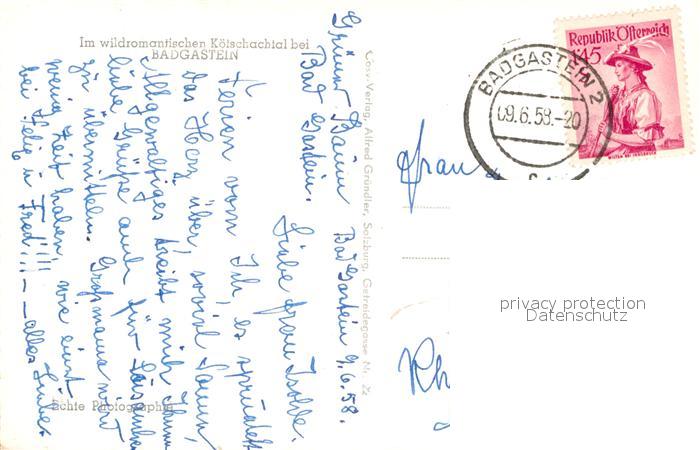 Im wildromantischen Kötschachtal bei
BADGASTEIN
Grüner Baum Bad Gastein 9.6.58.
Bad Gastein.
Liebe Frau Isolde.
Ferien vom Ich, es sprudelt
das Herz über, soviel Sonnen,
Allgewaltiges treibt mich Ihnen
liebe Grüße auch für
zu übermitteln. Großmama wird
wenig Zeit haben, wie einst
bei Helig u. Fred!!! — alles Liebe
Echte Photographie
Cosy-Verlag, Alfred Gründler, Salzburg, Getreidegasse Nr. 22
Republik Österreich
1.45
BADGASTEIN 2
09.6.58.-20
Frau
Rh
privacy protection
Datenschutz